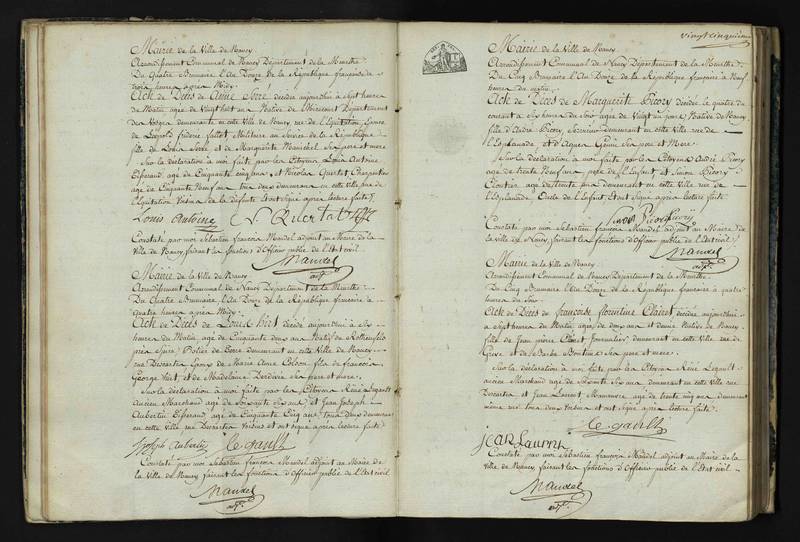 Mairie de la Ville de Nancy
Arrondissement Communal de Nancy Département de la Meurthe
Du Quatre Brumaire l'An Douze de la République française à
trois heures après Midy
Acte de Décès de Anne décédée aujourd'hui à sept heures
du Matin agée de Vingt huit ans Native de Mirecourt Département
des Vosges demeurante en cette Ville de Nancy rue de l'Equitation, Epouse
de Léopold fréderic Militaire au Service de la République
fille de Louis et de Marguerite ses pere et mere
Sur la déclaration à moi faite par les Citoyens Louis Antoine
agé de Cinquante cinq ans, et Nicolas Quertat Charpentier
agé de Cinquante Neuf ans tous deux demeurans en cette Ville rue de
l'Equitation Voisins de la défunte Et ont signé après lecture faite
Louis Antoine N Quertat
Constaté par moi Sébastien françois Mandel adjoint au Maire de la
Ville de Nancy faisant les fonctions d'Officier public de l'Etat civil
Mandel
adjt.
Mairie de la Ville de Nancy
Arrondissement Communal de Nancy Département de la Meurthe
Du Quatre Brumaire l'An Douze de la République française à
quatre heures après Midy
Acte de Décès de Louis décédé aujourd'hui à Six
heures du Matin, agé de Cinquante deux ans Natif de
près Spire demeurant en cette Ville de Nancy
rue Epoux de Marie Anne Colson fils de françois
George et de Madelaine ses pere et mere
Sur la déclaration à moi faite par les Citoyens Réné Legault
Ancien Marchand agé de Soixante Six ans et Jean Joseph
Aubertin agé de Cinquante Cinq ans tous deux demeurans
en cette Ville rue Voisins et ont signé après lecture faite
Joseph Aubertin Le gault
Constaté par moi Sébastien françois Mandel adjoint au Maire de
la Ville de Nancy faisant les fonctions d'Officier public de l'Etat civil
Mandel
adjt.
Vingt cinquième
Mairie de la Ville de Nancy
Arrondissement Communal de Nancy Département de la Meurthe
Du Cinq Brumaire l'An Douze de la République française à Neuf
heures du matin
Acte de Décès de Marguerite Picory décédée le quatre du
courant à Six heures du Soir agée de Vingt un jours Native de Nancy
fille d'André Picory, en cette Ville rue de
l'Esplanade, et d' ses Pere et Mere
Sur la déclaration à moi faite par les Citoyens André Picory
agé de trente Neuf ans pere de l'Enfant et Simon Picory
agé de trente ans demeurant en cette Ville rue de
l'Esplanade, Oncle de l'Enfant Et ont Signé après lecture faite
Simon Picory
Constaté par moi Sébastien françois Mandel adjoint au Maire de
la ville de Nancy, faisant les fonctions d'Officier public de l'Etat civil
Mandel
adjt.
Mairie de la Ville de Nancy
Arrondissement Communal de Nancy Département de la Meurthe
Du Cinq Brumaire l'An Douze de la République française à quatre
heures du Soir
Acte de Décès de françoise florentine Clairet, décédée aujourd'hui
à sept heures du Matin, agée de deux ans et demie Native de Nancy
fille de Jean pierre Clairet Journalier, demeurant en cette Ville rue de
Greve et de Barbe ses pere et mere
Sur la déclaration à moi faite par les Citoyens Réné Legault
ancien Marchand agé de Soixante Six ans demeurant en cette Ville rue
et Jean Laurent Manoeuvre, agé de trente cinq ans, demeurant
même rue tous deux Voisins et ont signé après lecture faite
Le gault
Jean Laurent
Constaté par moi Sébastien françois Mandel adjoint au Maire de la
Ville de Nancy faisant les fonctions d'Officier public de l'Etat civil
Mandel
adjt.